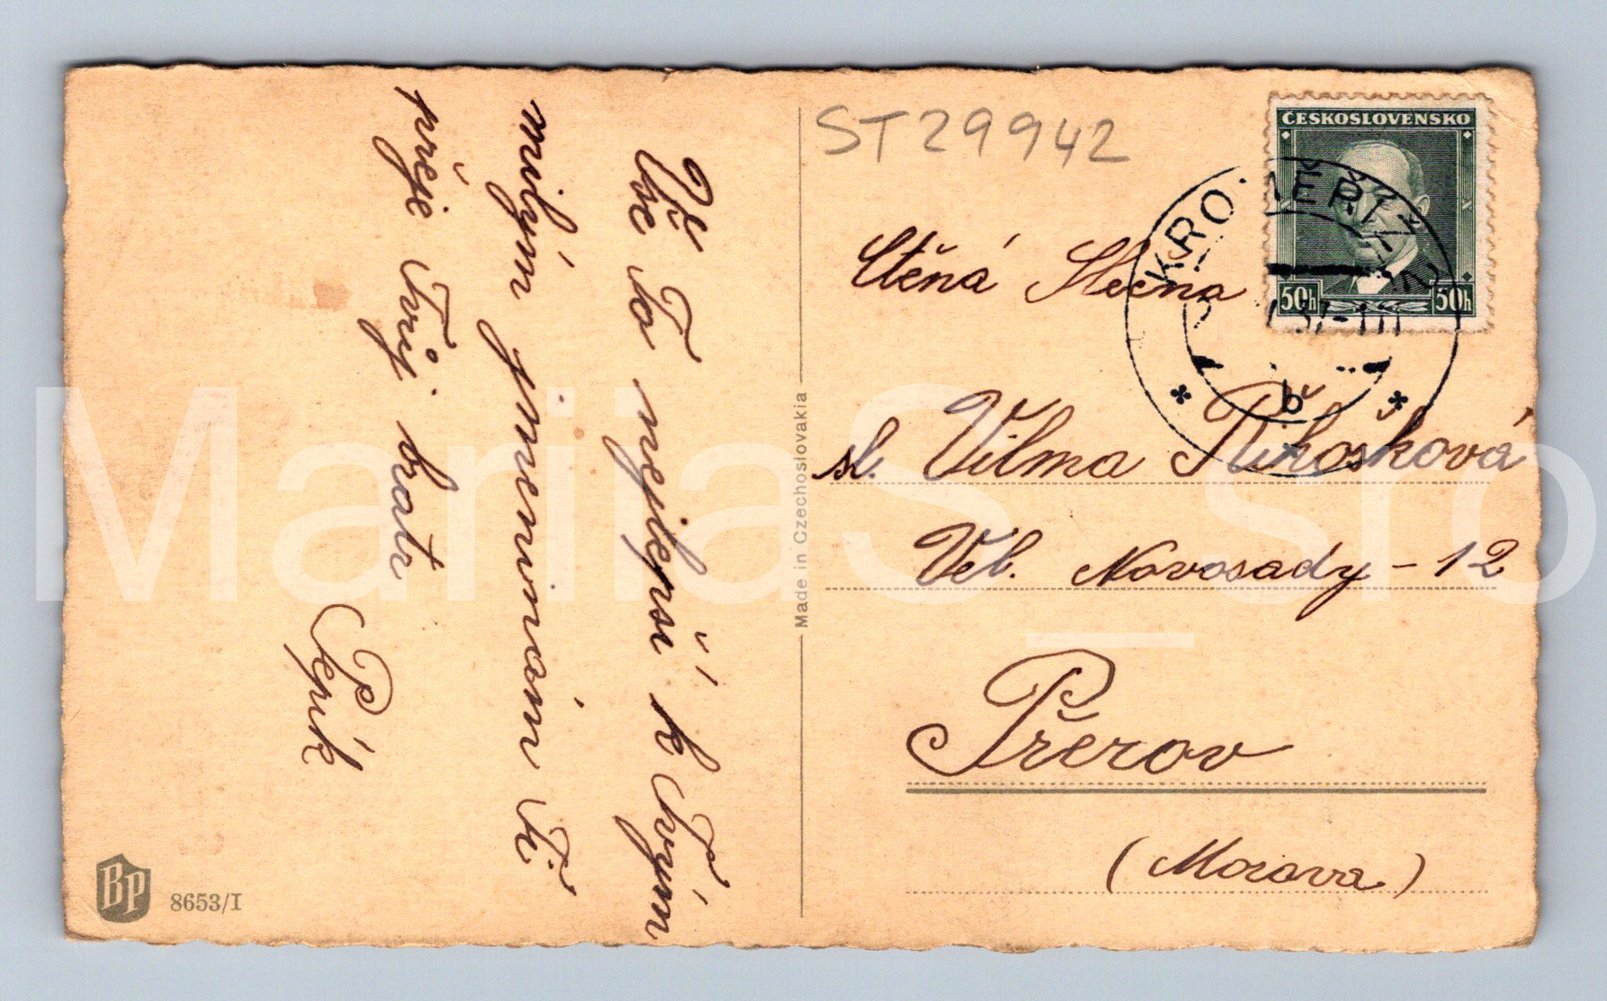 Vše To nejlepší k Tvým
milým jmeninám Ti
přeje Tvůj bratr
Pepík
ST29942
ČESKOSLOVENSKO
50h 50h
KROMĚŘÍŽ 2
b
Ctěná Slečna
sl. Vilma Rihošková
Vel. Novosady - 12
Přerov
(Morava)
Made in Czechoslovakia
BP 8653/I
MariiaS_sro